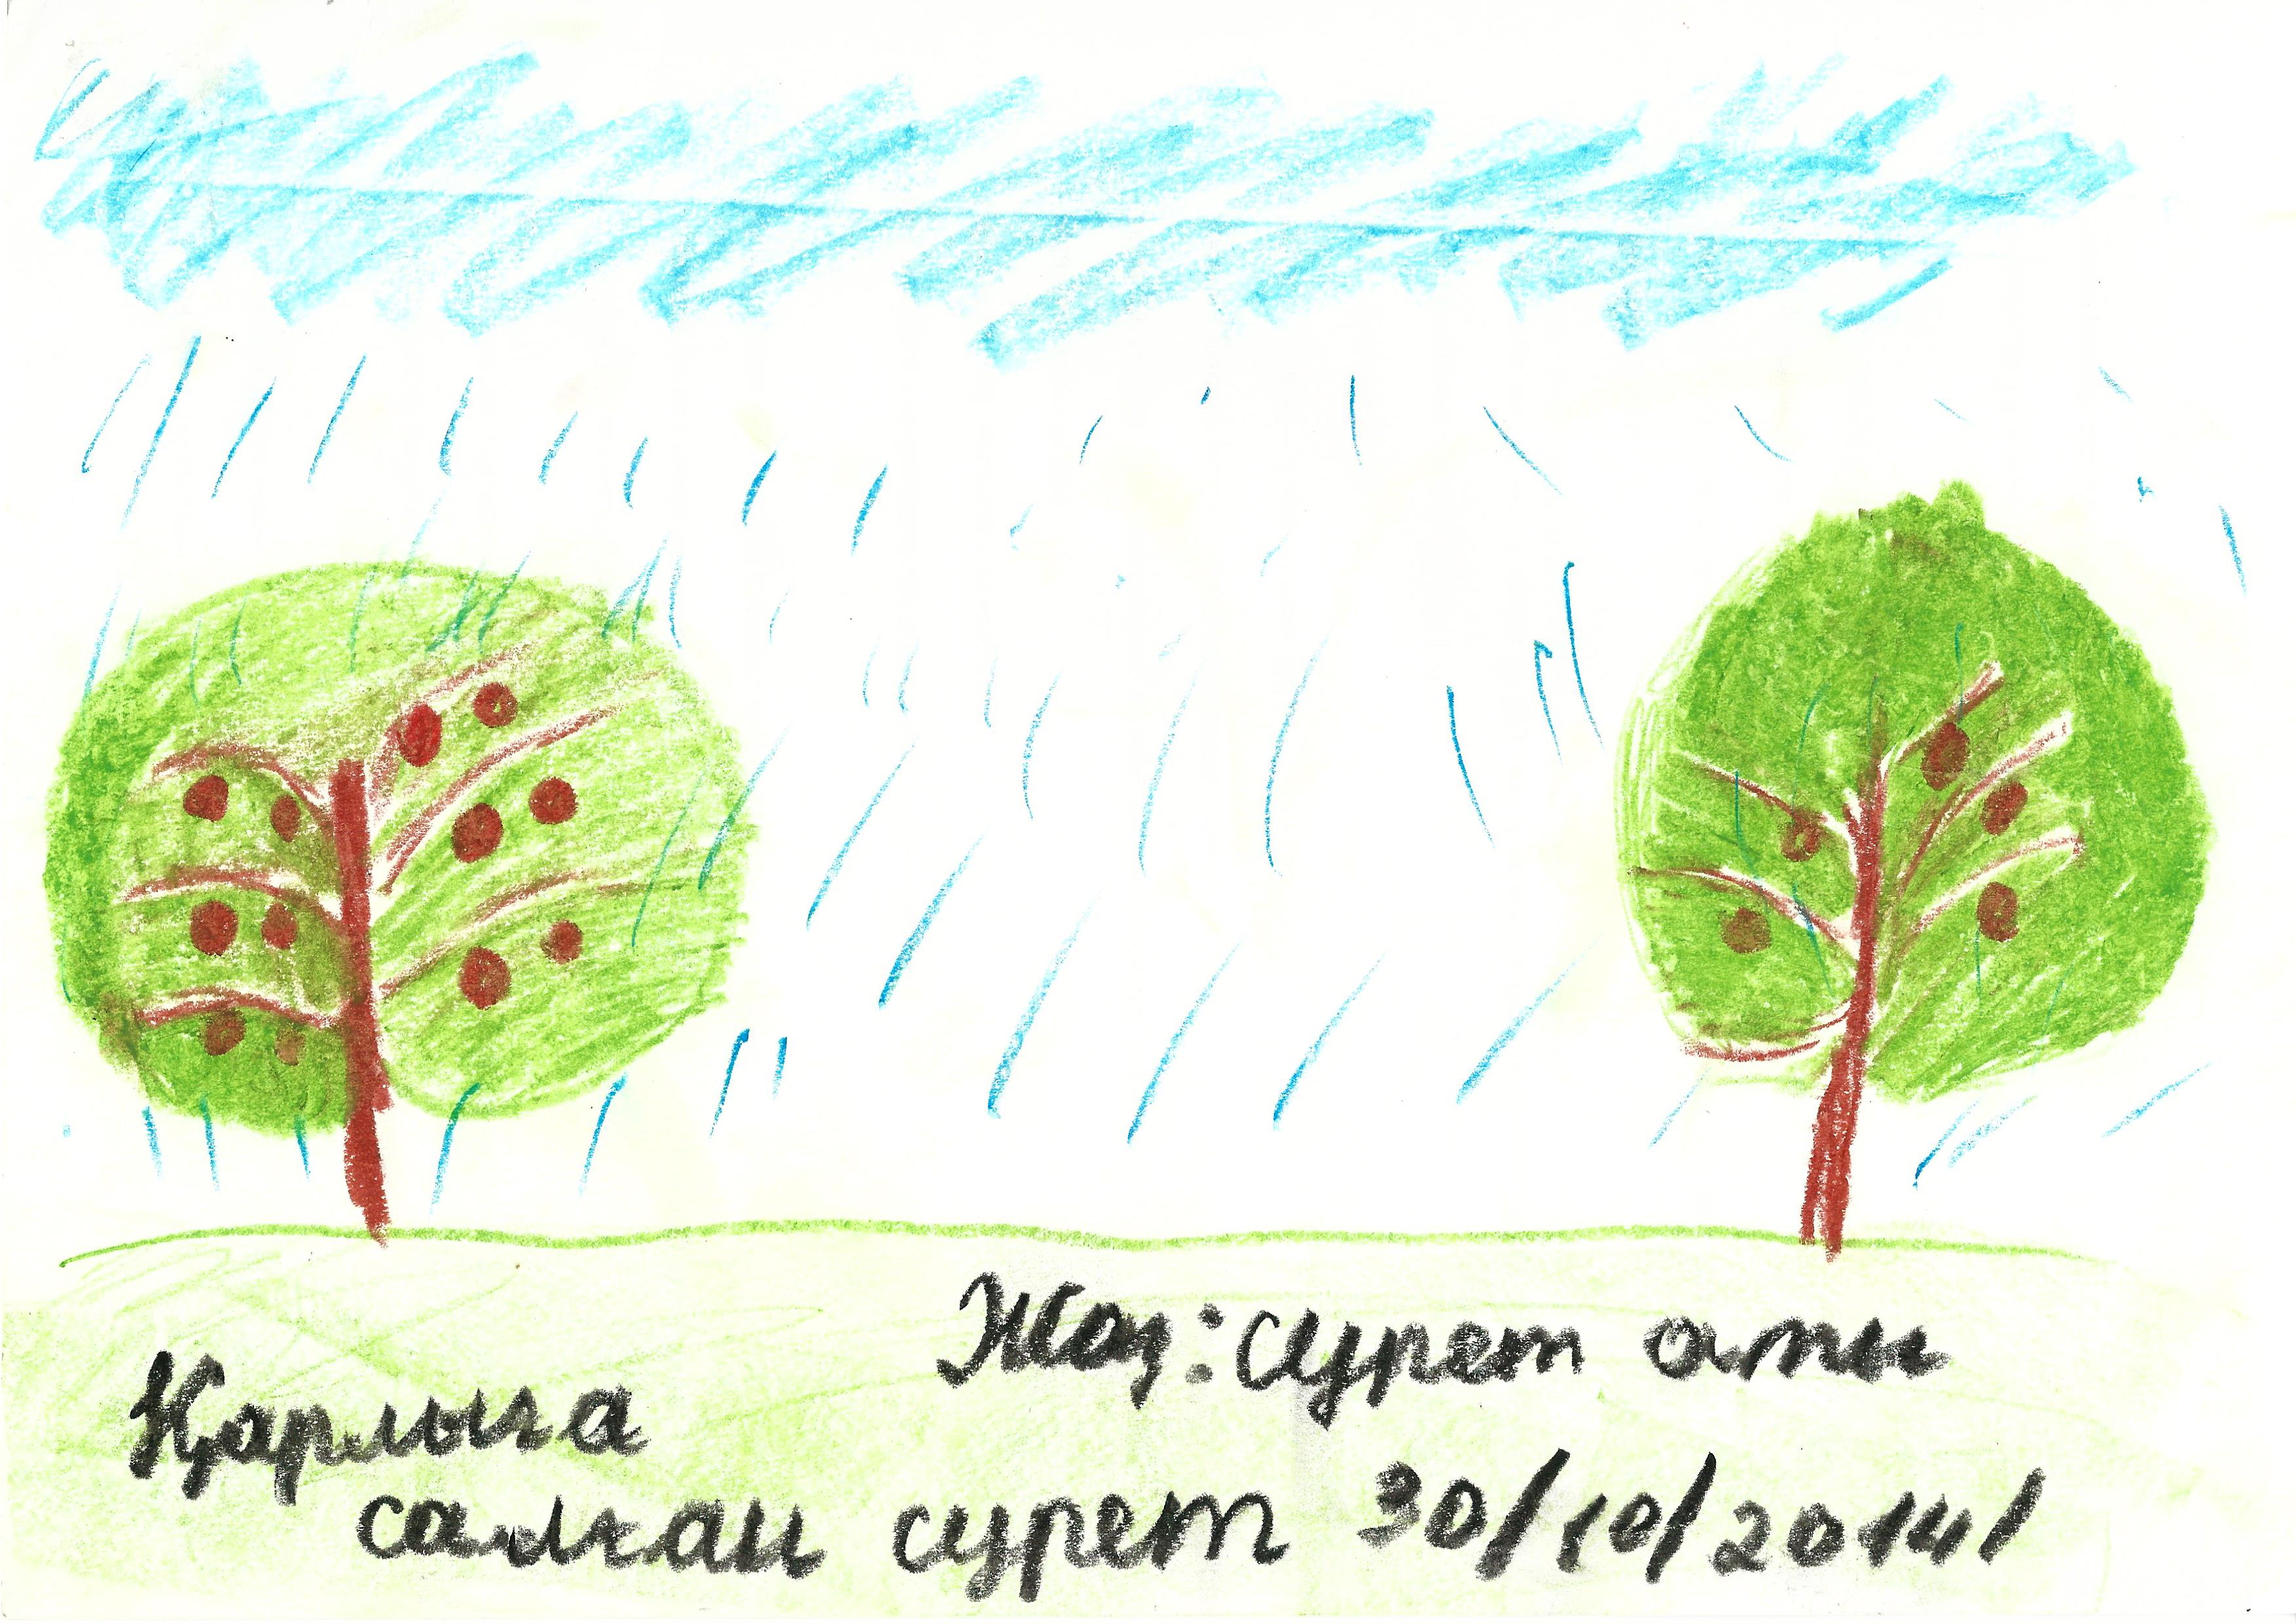 Жаз: сурет аты
Қарлыға
салған сурет 30/10/2014/